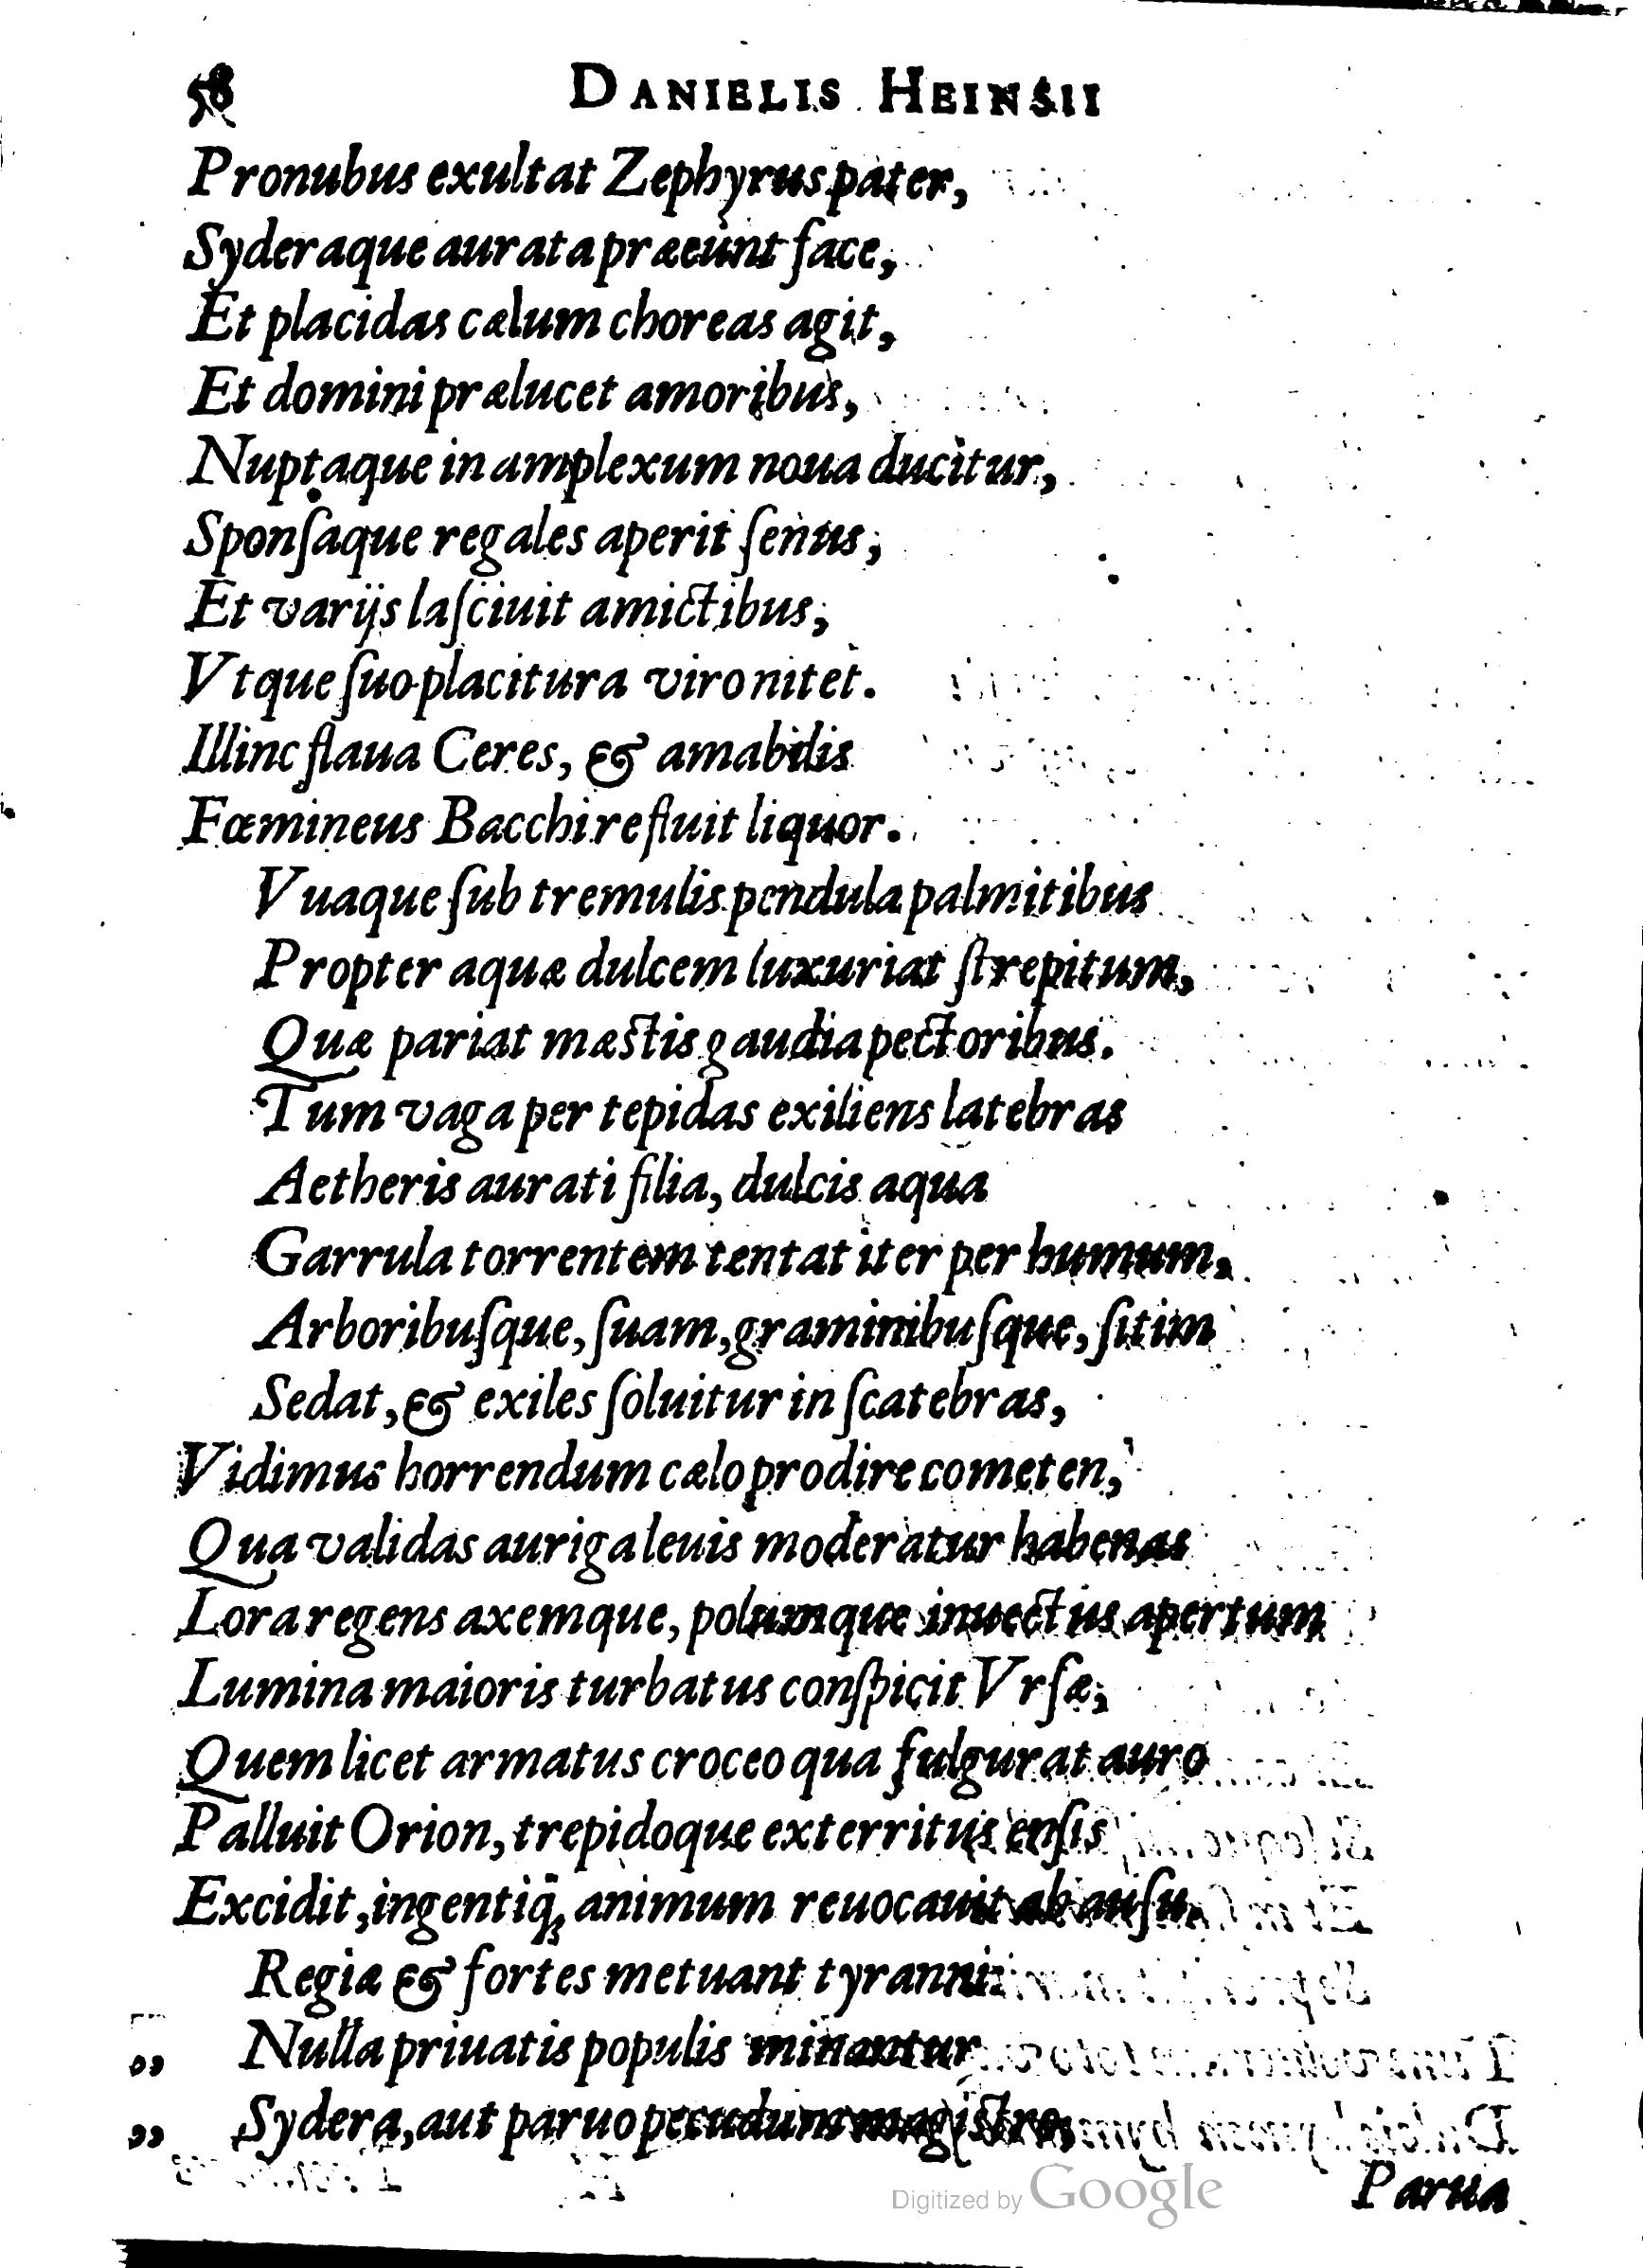 58 DANIELIS HEINSII
Pronubus exultat Zephyrus pater,
Syderaque aurata præeunt face,
Et placidas cælum choreas agit,
Et domini prælucet amoribus,
Nuptaque in amplexum noua ducitur,
Sponſaque regales aperit ſenus,
Et varijs laſciuit amictibus,
Vtque ſuo placitura viro nitet.
Illinc flaua Ceres, & amabilis
Fœmineus Bacchi refluit liquor.
Vuaque ſub tremulis pendula palmitibus
Propter aquæ dulcem luxuriat ſtrepitum,
Quæ pariat mæstis gaudia pectoribus.
Tum vaga per tepidas exiliens latebras
Aetheris aurati filia, dulcis aqua
Garrula torrentem tentat iter per humum,
Arboribuſque, ſuam, graminibuſque, ſitim
Sedat, & exiles ſoluitur in ſcatebras,
Vidimus horrendum cælo prodire cometen,
Qua validas auriga leuis moderatur habenas
Lora regens axemque, polumque inuectus apertum
Lumina maioris turbatus conſpicit Vrſæ,
Quem licet armatus croceo qua fulgurat auro
Palluit Orion, trepidoque exterritus enſis
Excidit, ingentiq́; animum reuocauit ab auſu,
Regiæ & fortes metuant tyranni:
„ Nulla priuatis populis minantur
„ Sydera, aut paruo pecudum magistro,
Parua
Digitized by Google